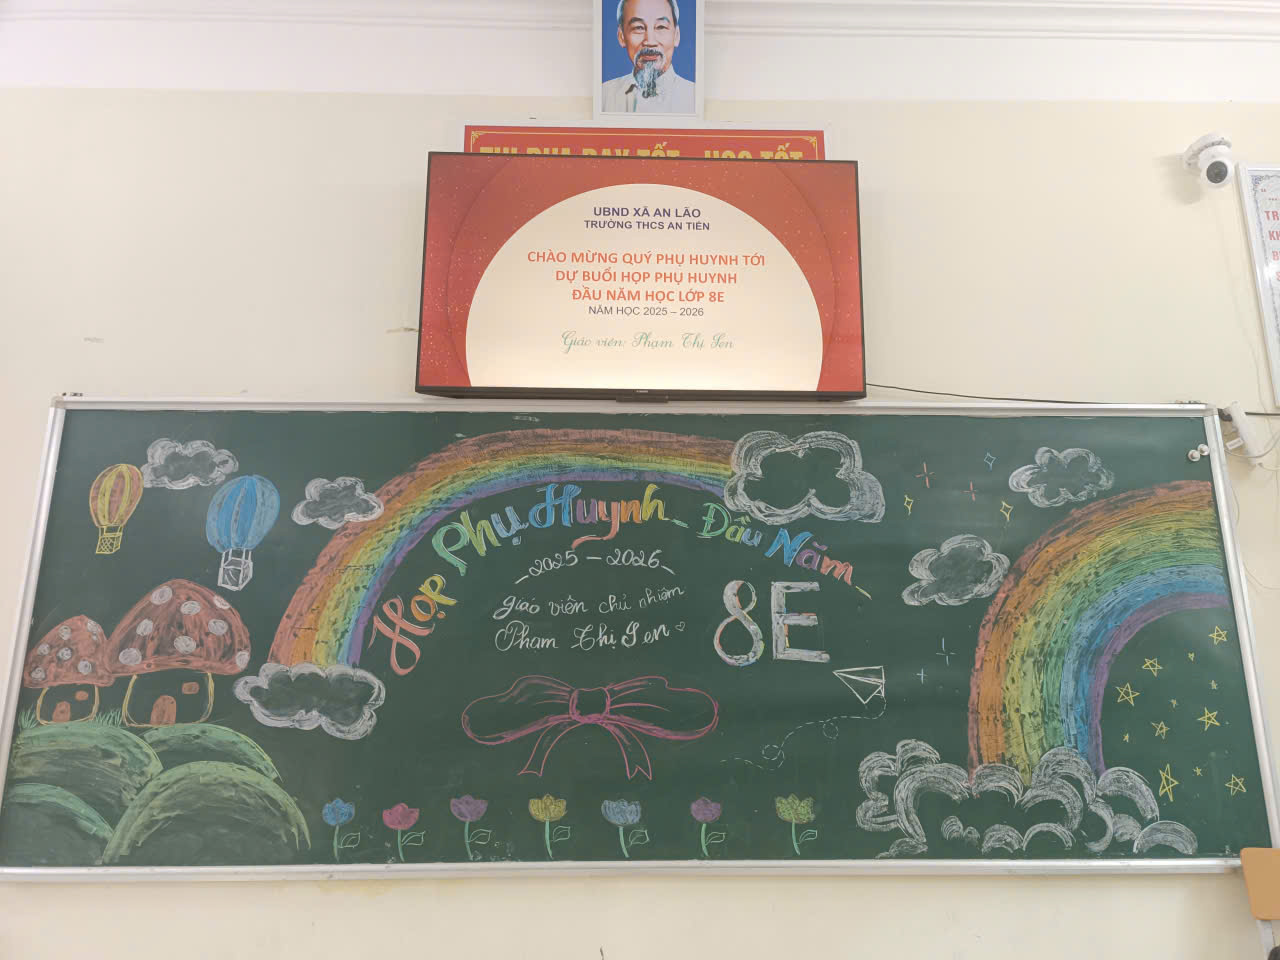 THI ĐUA DẠY TỐT - HỌC TỐT
UBND XÃ AN LÃO
TRƯỜNG THCS AN TIẾN
CHÀO MỪNG QUÝ PHỤ HUYNH TỚI
DỰ BUỔI HỌP PHỤ HUYNH
ĐẦU NĂM HỌC LỚP 8E
NĂM HỌC 2025 – 2026
Giáo viên: Phạm Thị Sen
Họp Phụ Huynh Đầu Năm
2025 - 2026
giáo viên chủ nhiệm
Phạm Thị Sen
8E